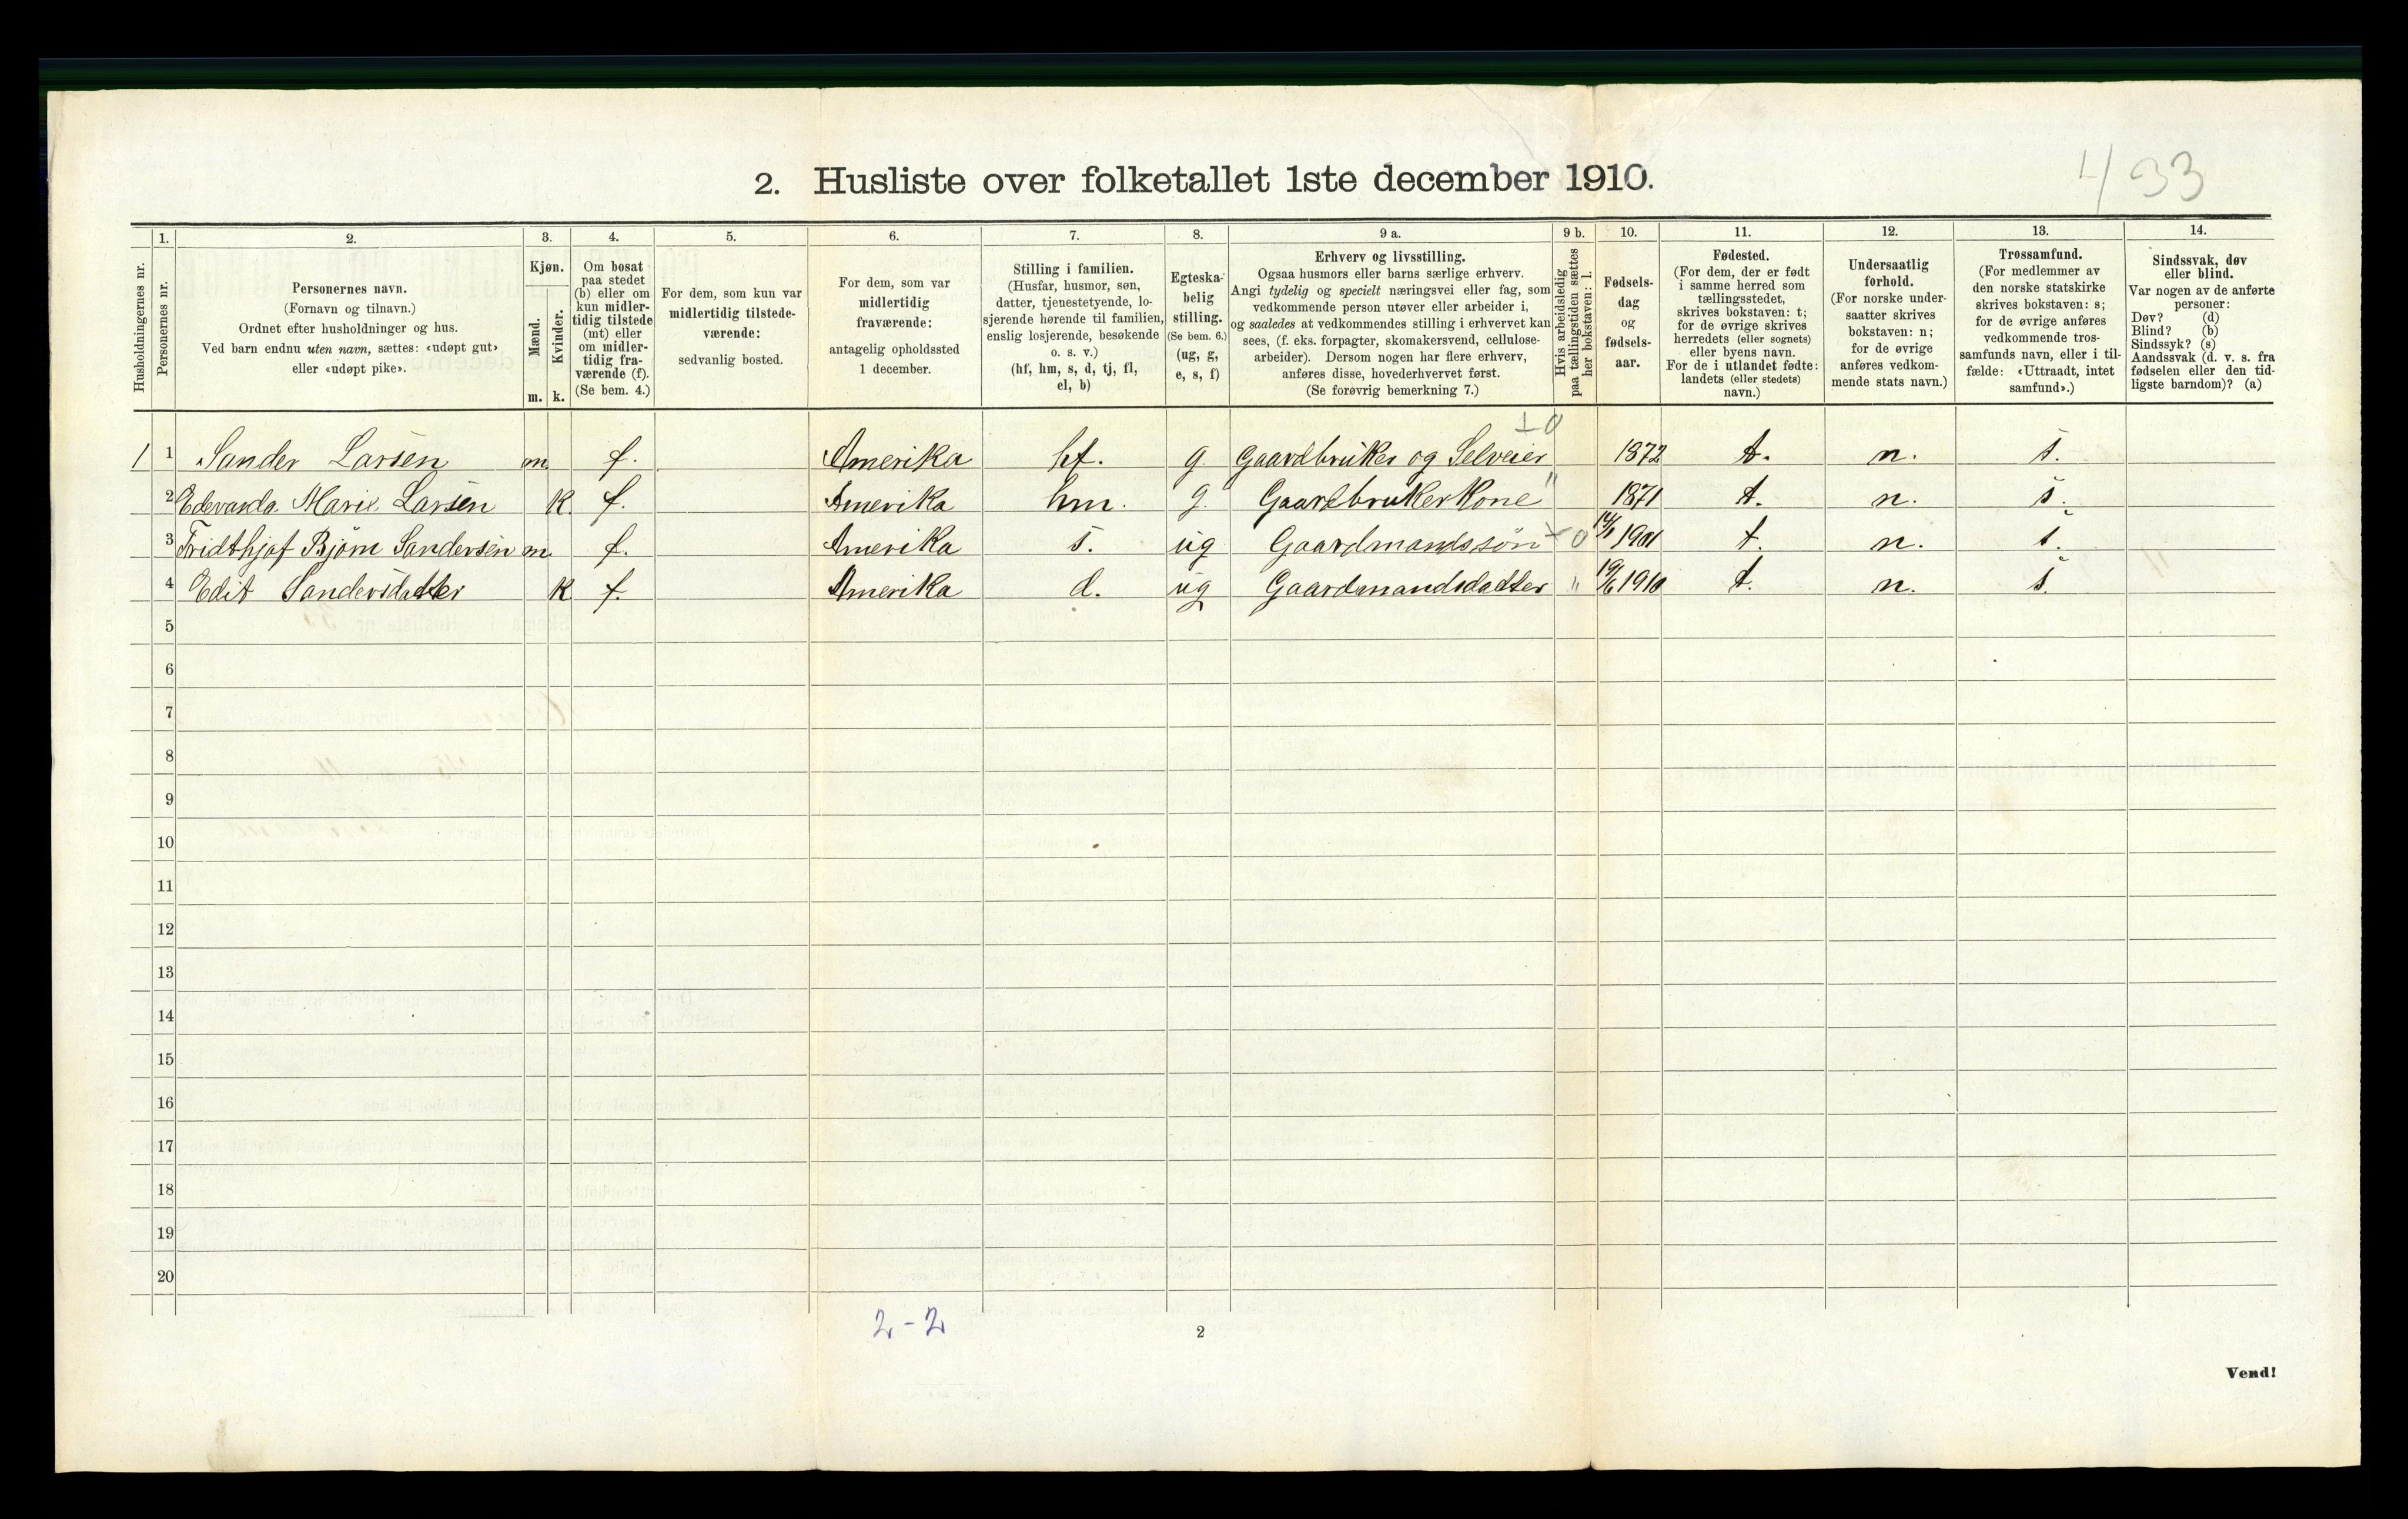 4/33
2. Husliste over folketallet 1ste december 1910.
1. 2. 3. 4. 5. 6. 7. 8. 9 a. 9 b. 10. 11. 12. 13. 14.
Husholdningernes nr.
Personernes nr.
Personernes navn.
(Fornavn og tilnavn.)
Ordnet efter husholdninger og hus.
Ved barn endnu uten navn, sættes: «udøpt gut»
eller «udøpt pike».
Kjøn.
Mænd.
Kvinder.
m. k.
Om bosat
paa stedet
(b) eller om
kun midler-
tidig tilstede
(mt) eller
om midler-
tidig fra-
værende (f).
(Se bem. 4.)
For dem, som kun var
midlertidig tilstede-
værende:
sedvanlig bosted.
For dem, som var
midlertidig
fraværende:
antagelig opholdssted
1 december.
Stilling i familien.
(Husfar, husmor, søn,
datter, tjenestetyende, lo-
sjerende hørende til familien,
enslig losjerende, besøkende
o. s. v.)
(hf, hm, s, d, tj, fl,
el, b)
Egteska-
belig
stilling.
(Se bem. 6.)
(ug, g,
e, s, f)
Erhverv og livsstilling.
Ogsaa husmors eller barns særlige erhverv.
Angi tydelig og specielt næringsvei eller fag, som
vedkommende person utøver eller arbeider i,
og saaledes at vedkommendes stilling i erhvervet kan
sees, (f. eks. forpagter, skomakersvend, cellulose-
arbeider). Dersom nogen har flere erhverv,
anføres disse, hovederhvervet først.
(Se forøvrig bemerkning 7.)
Hvis arbeidsledig
paa tællingstiden sættes
her bokstaven: l.
Fødsels-
dag
og
fødsels-
aar.
Fødested.
(For dem, der er født
i samme herred som
tællingsstedet,
skrives bokstaven: t;
for de øvrige skrives
herredets (eller sognets)
eller byens navn.
For de i utlandet fødte:
landets (eller stedets)
navn.)
Undersaatlig
forhold.
(For norske under-
saatter skrives
bokstaven: n;
for de øvrige
anføres vedkom-
mende stats navn.)
Trossamfund.
(For medlemmer av
den norske statskirke
skrives bokstaven: s;
for de øvrige anføres
vedkommende tros-
samfunds navn, eller i til-
fælde: «Uttraadt, intet
samfund».)
Sindssvak, døv
eller blind.
Var nogen av de anførte
personer:
Døv? (d)
Blind? (b)
Sindssyk? (s)
Aandssvak (d. v. s. fra
fødselen eller den tid-
ligste barndom)? (a)
1 1 Sander Larsen m. f. Amerika hf. g. Gaardbruker og Selveier 1872 t. n. s.
2 Marie Larsen k. f. Amerika hm. g. Gaardbrukerkone " 1871 t. n. s.
3 Fridthjof Bjørn Sandersen m. f. Amerika s. ug Gaardmandssøn 0 1901 t. n. s.
4 Edit Sandersdatter k f. Amerika d. ug Gaardmandsdatter " 19/6 1910 t. n. s.
5
6
7
8
9
10
11
12
13
14
15
16
17
18
19
20
2-2
2
Vend!